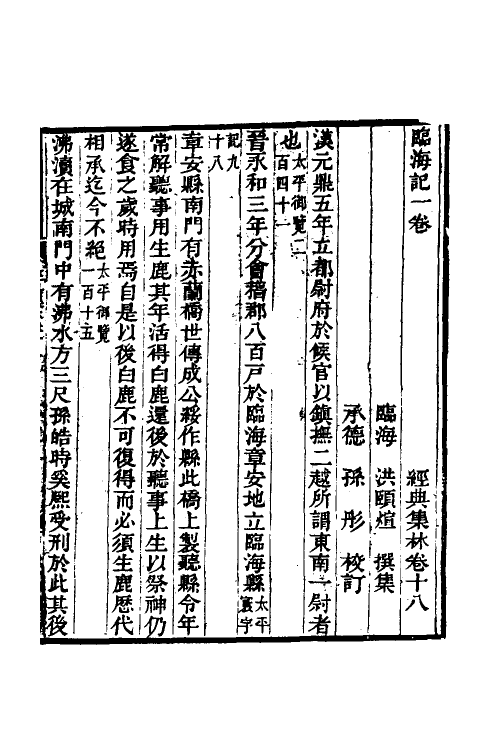 臨海記一卷　經典集林卷十八
臨海　洪頤煊　撰集
承德　孫彤　校訂
漢元鼎五年立都尉府於候官以鎮撫二越所謂東南一尉者
也太平御覽二百四十一
晉永和三年分會稽郡八百戸於臨海章安地立臨海縣太平寰宇
記九十八
章安縣南門有赤蘭橋世傳成公綏作縣此橋上製聽縣令年
常解聽事用生鹿其年活得白鹿還後於聽事上生以祭神仍
遂食之歲時用焉自是以後白鹿不可復得而必須生鹿歴代
相承迄今不絕太平御覽一百十五
沸瀆在城南門中有沸水方三尺孫皓時奚熙受刑於此其後